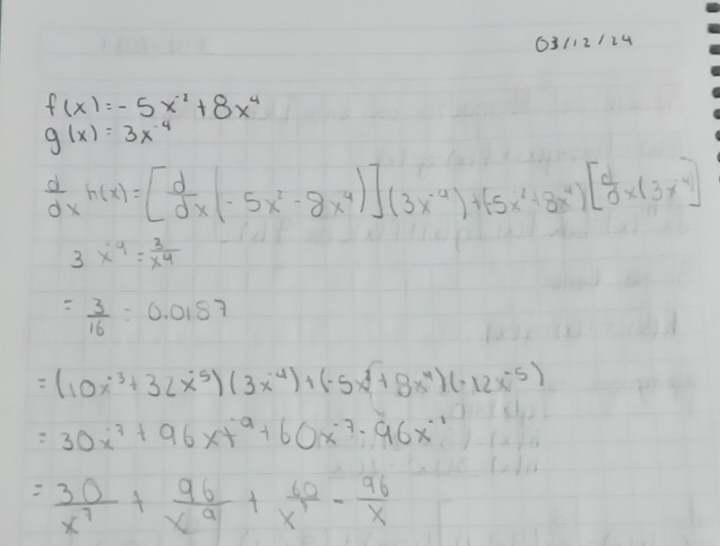 03/12/24
f(x)=-5x⁻²+8x⁴
g(x)=3x⁻⁴
d/dx h(x)=[d/dx(-5x²-8x⁴)](3x⁻⁴)+(-5x⁻²+8x⁴)[d/dx(3x⁻⁴)]
3x⁻⁴=3/x⁴
=3/16=0.0187
=(10x⁻³+32x⁻⁵)(3x⁻⁴)+(-5x²+8x⁴)(-12x⁻⁵)
=30x⁻⁷+96x+⁻⁹+60x⁻⁷-96x⁻¹
=30/x⁷+96/x⁹+60/x-96/x